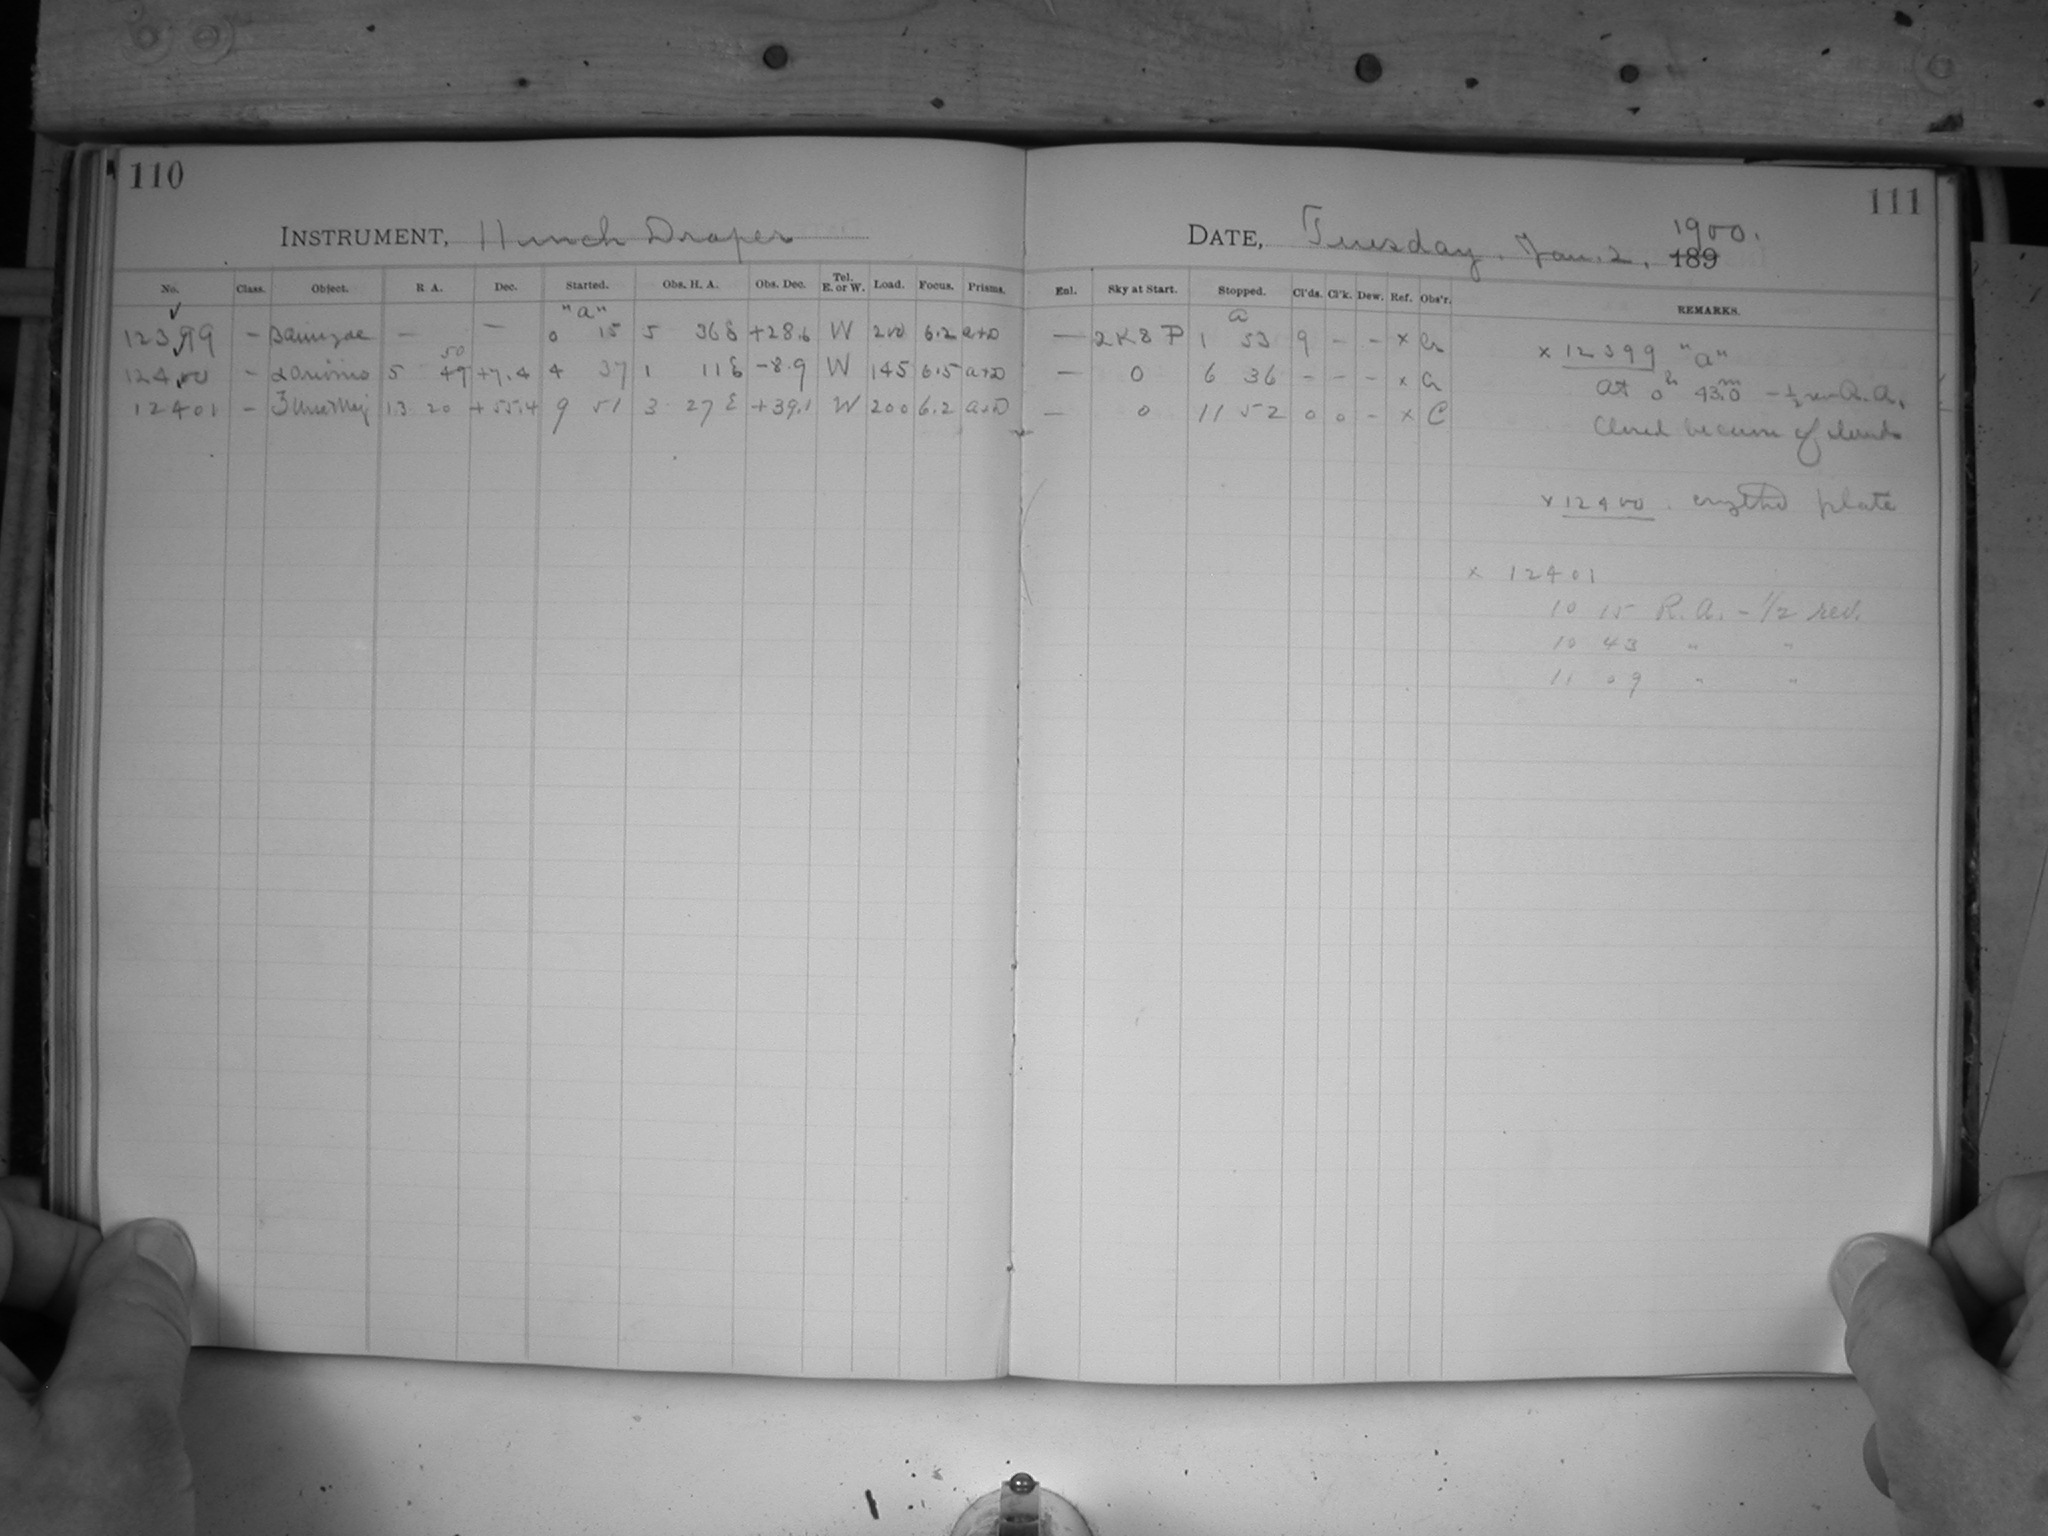 110
INSTRUMENT, 11 inch Draper
No. Class. Object. R A. Dec. Started. Obs. H. A. Obs. Dec. Tel. E. or W. Load. Focus. Prisms.
"a"
12399 - β Aurigae — — 0 15 5 36 E +28.6 W 200 6.2 a+D
50
12400 - α Orionis 5 49 +7.4 4 37 1 11 E -8.9 W 145 6.5 a+D
12401 - ζ Urs Maj 13 20 +55.4 9 51 3 27 E +39.1 W 200 6.2 a+D
111
1900.
DATE, Tuesday. Jan. 2. 189
Enl. Sky at Start. Stopped. Cl'ds. Cl'k. Dew. Ref. Obs'r. REMARKS.
a
— 2K8 P 1 53 9 - - x
— 0 6 36 - - - x
— 0 11 52 0 0 - x C
x 12399 "a"
At 0h 43.0m - ½ rev R.A.
Closed because of clouds
x 12400. erythro plate
x 12401
10 15 R.A. - 1/2 rev.
10 43 " "
11 09 " "